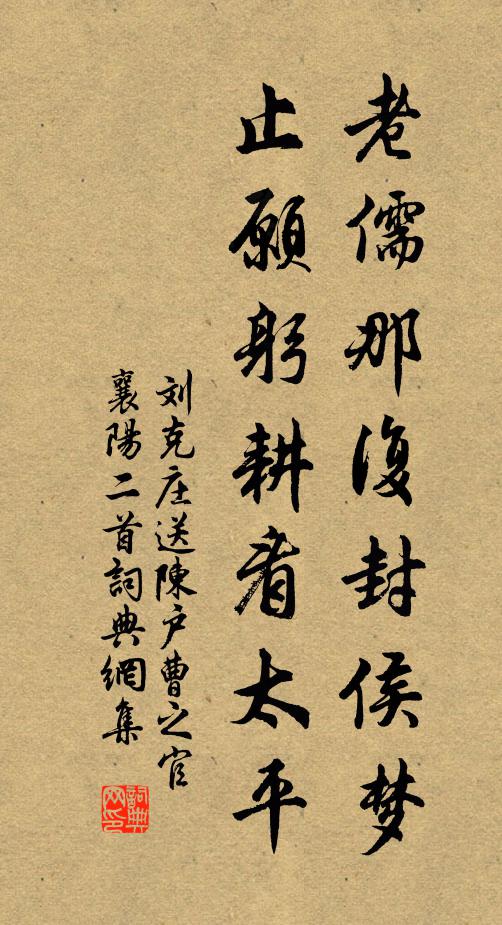 老儒那復封侯梦
止願躬耕看太平
刘克庄送陳户曹之官
襄陽二首詞典網集
詞典網印